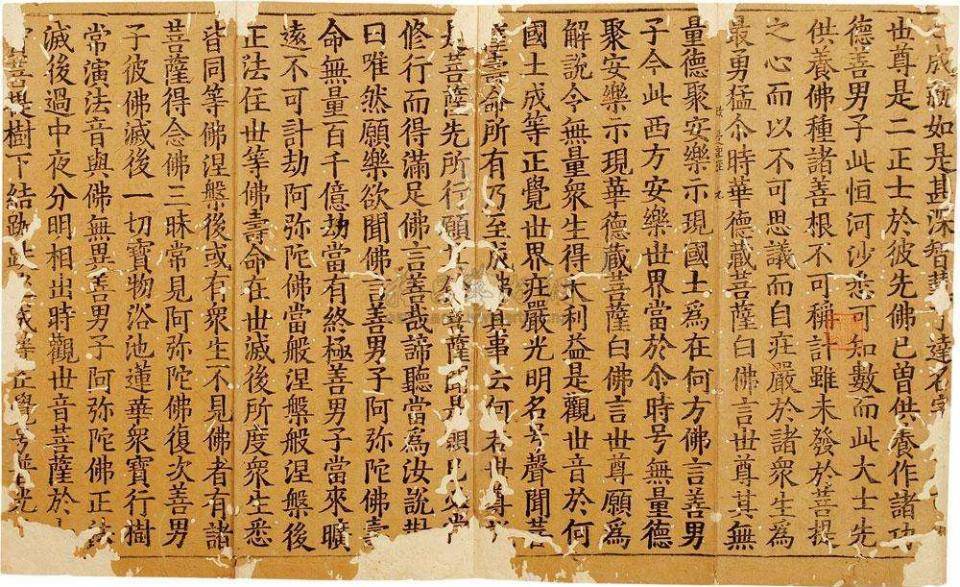 成就如是甚深智慧了達名字
世尊是二正士於彼先佛已曽供養作諸功
德善男子此恒河沙悉可知數而此大士先
供養佛種諸善根不可稱計雖未發於菩提
之心而以不可思議而自莊嚴於諸衆生爲
最勇猛尒時華德蔵菩薩白佛言世尊其無
量德聚安樂示現國土爲在何方佛言善男
子今此西方安樂世界當於尒時号無量德
聚安樂示現華德蔵菩薩白佛言世尊願爲
解說令無量衆生得大利益是觀世音於何
國土成等正覺世界莊嚴光明名号聲聞菩
薩壽命所有乃至成佛其事云何若世尊
是菩薩先所行願
修行而得滿足佛言善哉諦聽當為汝說
曰唯然願樂欲聞佛言善男子阿弥陀佛壽
命無量百千億劫當有終極善男子當來曠
遠不可計劫阿弥陀佛當般涅槃般涅槃後
正法住世等佛壽命在世滅後所度衆生悉
皆同等佛涅槃後或有衆生不見佛者有諸
菩薩得念佛三昧常見阿弥陀佛復次善男
子彼佛滅後一切寶物浴池蓮華衆寶行樹
常演法音與佛無異善男子阿弥陀佛正法
滅後過中夜分明相出時觀世音菩薩於
菩提樹下結跏成等正覺号普光